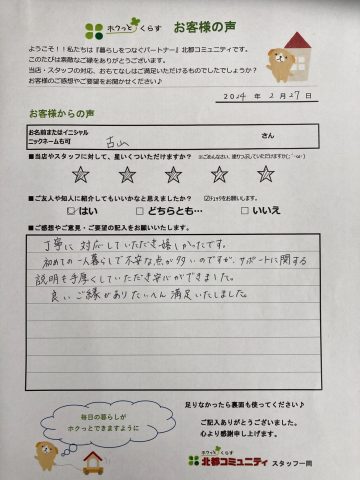 ホクっとくらす お客様の声
ようこそ！！私たちは『暮らしをつなぐパートナー』北都コミュニティです。
このたびは素敵なご縁をありがとうございます。
当店・スタッフの対応、おもてなしはご満足いただけるものでしたでしょうか？
お客様のご感想やご要望をお聞かせください♪
2024 年 2 月 27 日
お客様からの声
お名前またはイニシャル
ニックネームも可
古山 さん
■当店やスタッフに対して、星いくつだけますか？ ※ごめんなさい、塗りつぶしていただけますか(;´･ω･)
☆ ☆ ☆ ☆ ☆
■ご友人や知人に紹介してもいいかなと思えましたか？ ☑チェックをお願いします。
☑はい □どちらとも… □いいえ
■ご感想やご意見・ご要望の記入をお願いします。
丁寧に対応していただき嬉しかったです。
初めての一人暮らしで不安な点が多いのですが、サポートに関する
説明も手厚くしていただき安心ができました。
良いご縁がありたいへん満足いたしました。
足りなかったら裏面も使ってください♪
毎日の暮らしが
ホクっとできますように
ご記入ありがとうございました。
心より感謝申し上げます。
ホクっとくらす
北都コミュニティ スタッフ一同